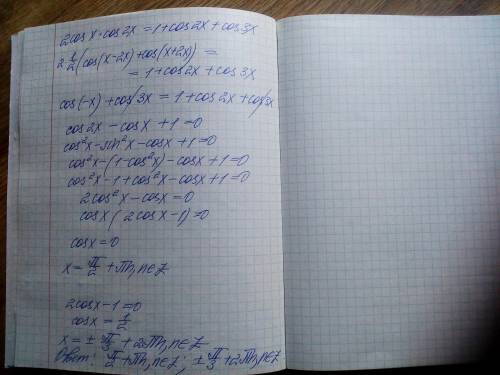 2cosx·cos2x=1+cos2x+cos3x
2·1/2(cos(x-2x)+cos(x+2x))=
=1+cos2x+cos3x
cos(-x)+cos3x=1+cos2x+cos3x
cos2x-cosx+1=0
cos²x-sin²x-cosx+1=0
cos²x-(1-cos²x)-cosx+1=0
cos²x-1+cos²x-cosx+1=0
2cos²x-cosx=0
cosx(2cosx-1)=0
cosx=0
x=π/2+πn, n∈Z
2cosx-1=0
cosx=1/2
x=±π/3+2πn, n∈Z
Ответ: π/2+πn, n∈Z; ±π/3+2πn, n∈Z